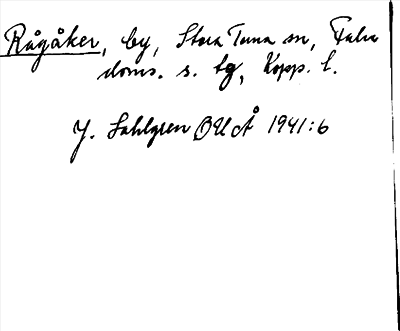 Rågåker, by, Stora Tuna sn, Falu
doms. s. lg, Kopp. l.
J. Sahlgren OUÅ 1941:6